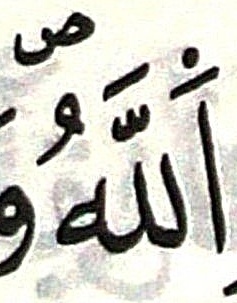 اَ۬للَّهُۖ وَ